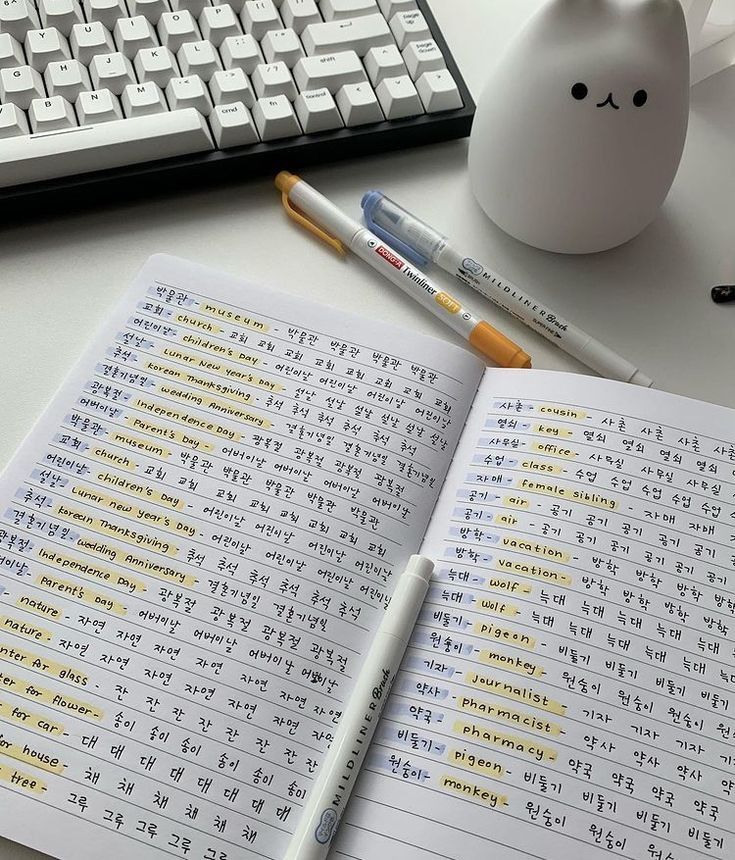 page up
page down
shift
cmd
fn
control
option
DONG-A Twinliner SOFT
MILDLINER Brush
SUPER FINE
박물관 - museum - 박물관 박물관 박물관 박물관
교회 - church - 교회 교회 교회 교회 교회 교회
어린이날 - children's Day - 어린이날 어린이날 어린이날 어린이날
설날 - Lunar New year's Day - 설날 설날 설날 설날 설날 설날
추석 - Korean Thanksgiving - 추석 추석 추석 추석 추석
결혼기념일 - wedding Anniversary - 결혼기념일 결혼기념일 결혼기념일
광복절 - Independence Day - 광복절 광복절 광복절 광복절
어버이날 - Parent's Day - 어버이날 어버이날 어버이날 어버이날
박물관 - museum - 박물관 박물관 박물관 박물관
교회 - church - 교회 교회 교회 교회 교회 교회
어린이날 - children's Day - 어린이날 어린이날 어린이날 어린이날
설날 - Lunar New year's Day - 설날 설날 설날 설날
추석 - Korean Thanksgiving - 추석 추석 추석 추석 추석
결혼기념일 - wedding Anniversary - 결혼기념일 결혼기념일
광복절 - Independence Day - 광복절 광복절 광복절 광복절
어버이날 - Parent's Day - 어버이날 어버이날 어버이날 어버이날
- nature - 자연 자연 자연 자연 자연 자연
nature - 자연 자연 자연 자연 자연 자연
for glass - 잔 잔 잔 잔 잔 잔
for flower - 송이 송이 송이 송이 송이
for car - 대 대 대 대 대 대 대
for house - 채 채 채 채 채
tree - 그루 그루 그루 그루 그루
사촌 - cousin - 사촌 사촌 사촌
열쇠 - key - 열쇠 열쇠 열쇠 열쇠
사무실 - office - 사무실 사무실 사무실
수업 - class - 수업 수업 수업 수업
자매 - female sibling - 자매 자매
공기 - air - 공기 공기 공기 공기
공기 - air - 공기 공기 공기 공기
방학 - vacation - 방학 방학 방학 방학
방학 - vacation - 방학 방학 방학 방학
늑대 - wolf - 늑대 늑대 늑대 늑대
늑대 - wolf - 늑대 늑대 늑대 늑대
비둘기 - pigeon - 비둘기 비둘기 비둘기
원숭이 - monkey - 원숭이 원숭이 원숭이
기자 - journalist - 기자 기자 기자
약사 - pharmacist - 약사 약사 약사
약국 - pharmacy - 약국 약국 약국 약국
비둘기 - pigeon - 비둘기 비둘기 비둘기
원숭이 - monkey - 원숭이 원숭이 원숭이
MILDLINER Brush